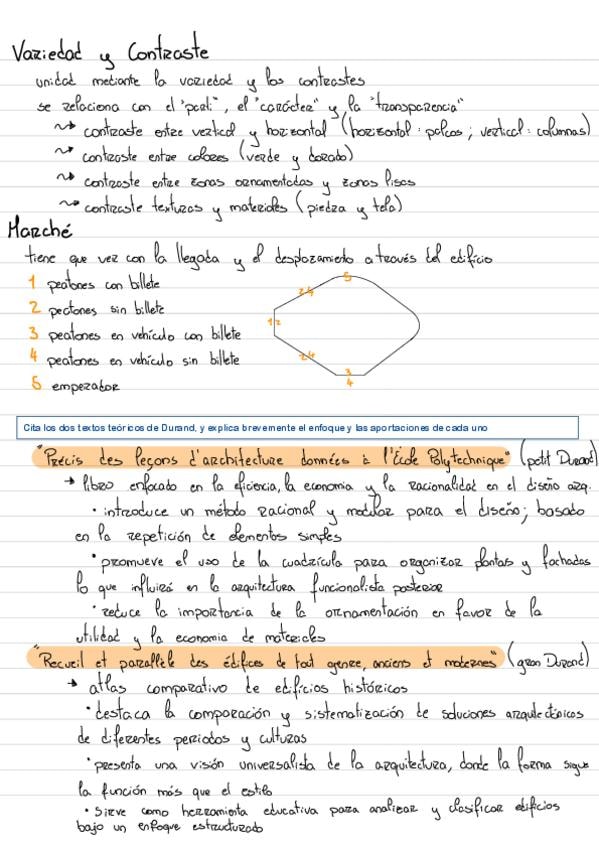 Variedad y Contraste
unidad mediante la variedad y los contrastes
se relaciona con el "parti", el "carácter" y la "transparencia"
↝ contraste entre vertical y horizontal (horizontal: palcos; vertical: columnas)
↝ contraste entre colores (verde y dorado)
↝ contraste entre zonas ornamentadas y zonas lisas
↝ contraste texturas y materiales (piedra y tela)
Marché
tiene que ver con la llegada y el desplazamiento a través del edificio
1 peatones con billete
2 peatones sin billete
3 peatones en vehículo con billete
4 peatones en vehículo sin billete
5 emperador
5
24
12
24
3
4
Cita los dos textos teóricos de Durand, y explica brevemente el enfoque y las aportaciones de cada uno
"Précis des leçons d'architecture données à l'École Polytechnique" (petit Durand)
→ libro enfocado en la eficiencia, la economía y la racionalidad en el diseño arq.
· introduce un método racional y modular para el diseño; basado
en la repetición de elementos simples
· promueve el uso de la cuadrícula para organizar plantas y fachadas
lo que influirá en la arquitectura funcionalista posterior
· reduce la importancia de la ornamentación en favor de la
utilidad y la economía de materiales
"Recueil et parallèle des édifices de tout genre, anciens et modernes" (gran Durand)
→ atlas comparativo de edificios históricos
· destaca la comparación y sistematización de soluciones arquitectónicas
de diferentes periodos y culturas
· presenta una visión universalista de la arquitectura, donde la forma sigue
la función más que el estilo
· sirve como herramienta educativa para analizar y clasificar edificios
bajo un enfoque estructurado